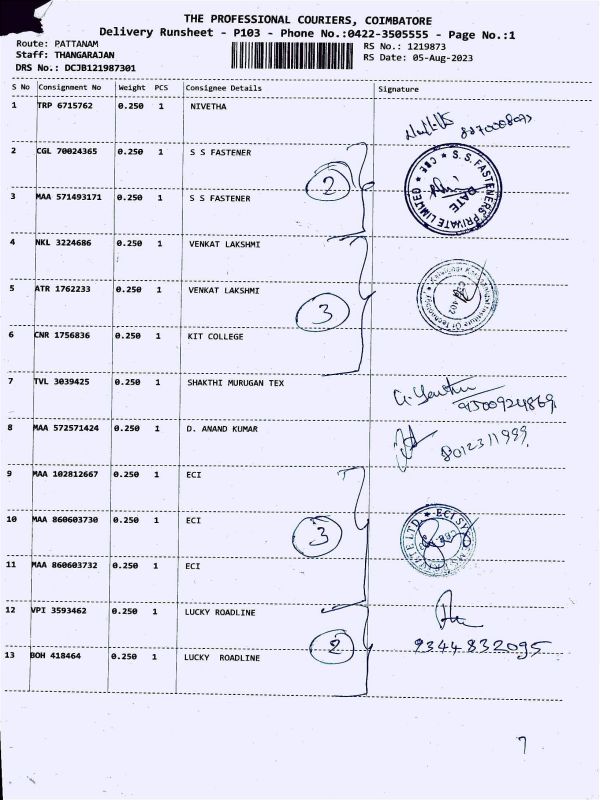 THE PROFESSIONAL COURIERS, COIMBATORE
Delivery Runsheet - P103 - Phone No.:0422-3505555 - Page No.:1
Route: PATTANAM RS No.: 1219873
Staff: THANGARAJAN RS Date: 05-Aug-2023
DRS No.: DCJB121987301
S No Consignment No Weight PCS Consignee Details Signature
1 TRP 6715762 0.250 1 NIVETHA
8870008093
2 CGL 70024365 0.250 1 S S FASTENER
S.S. FASTENERS PRIVATE LIMITED * CBE *
DATE
2
3 MAA 571493171 0.250 1 S S FASTENER
4 NKL 3224686 0.250 1 VENKAT LAKSHMI
5 ATR 1762233 0.250 1 VENKAT LAKSHMI
Institute Of Technology
3
6 CNR 1756836 0.250 1 KIT COLLEGE
7 TVL 3039425 0.250 1 SHAKTHI MURUGAN TEX
9500924869
8 MAA 572571424 0.250 1 D. ANAND KUMAR
8012311999
9 MAA 102812667 0.250 1 ECI
10 MAA 860603730 0.250 1 ECI
3
11 MAA 860603732 0.250 1 ECI
12 VPI 3593462 0.250 1 LUCKY ROADLINE
2
9344832095
13 BOH 418464 0.250 1 LUCKY ROADLINE
7